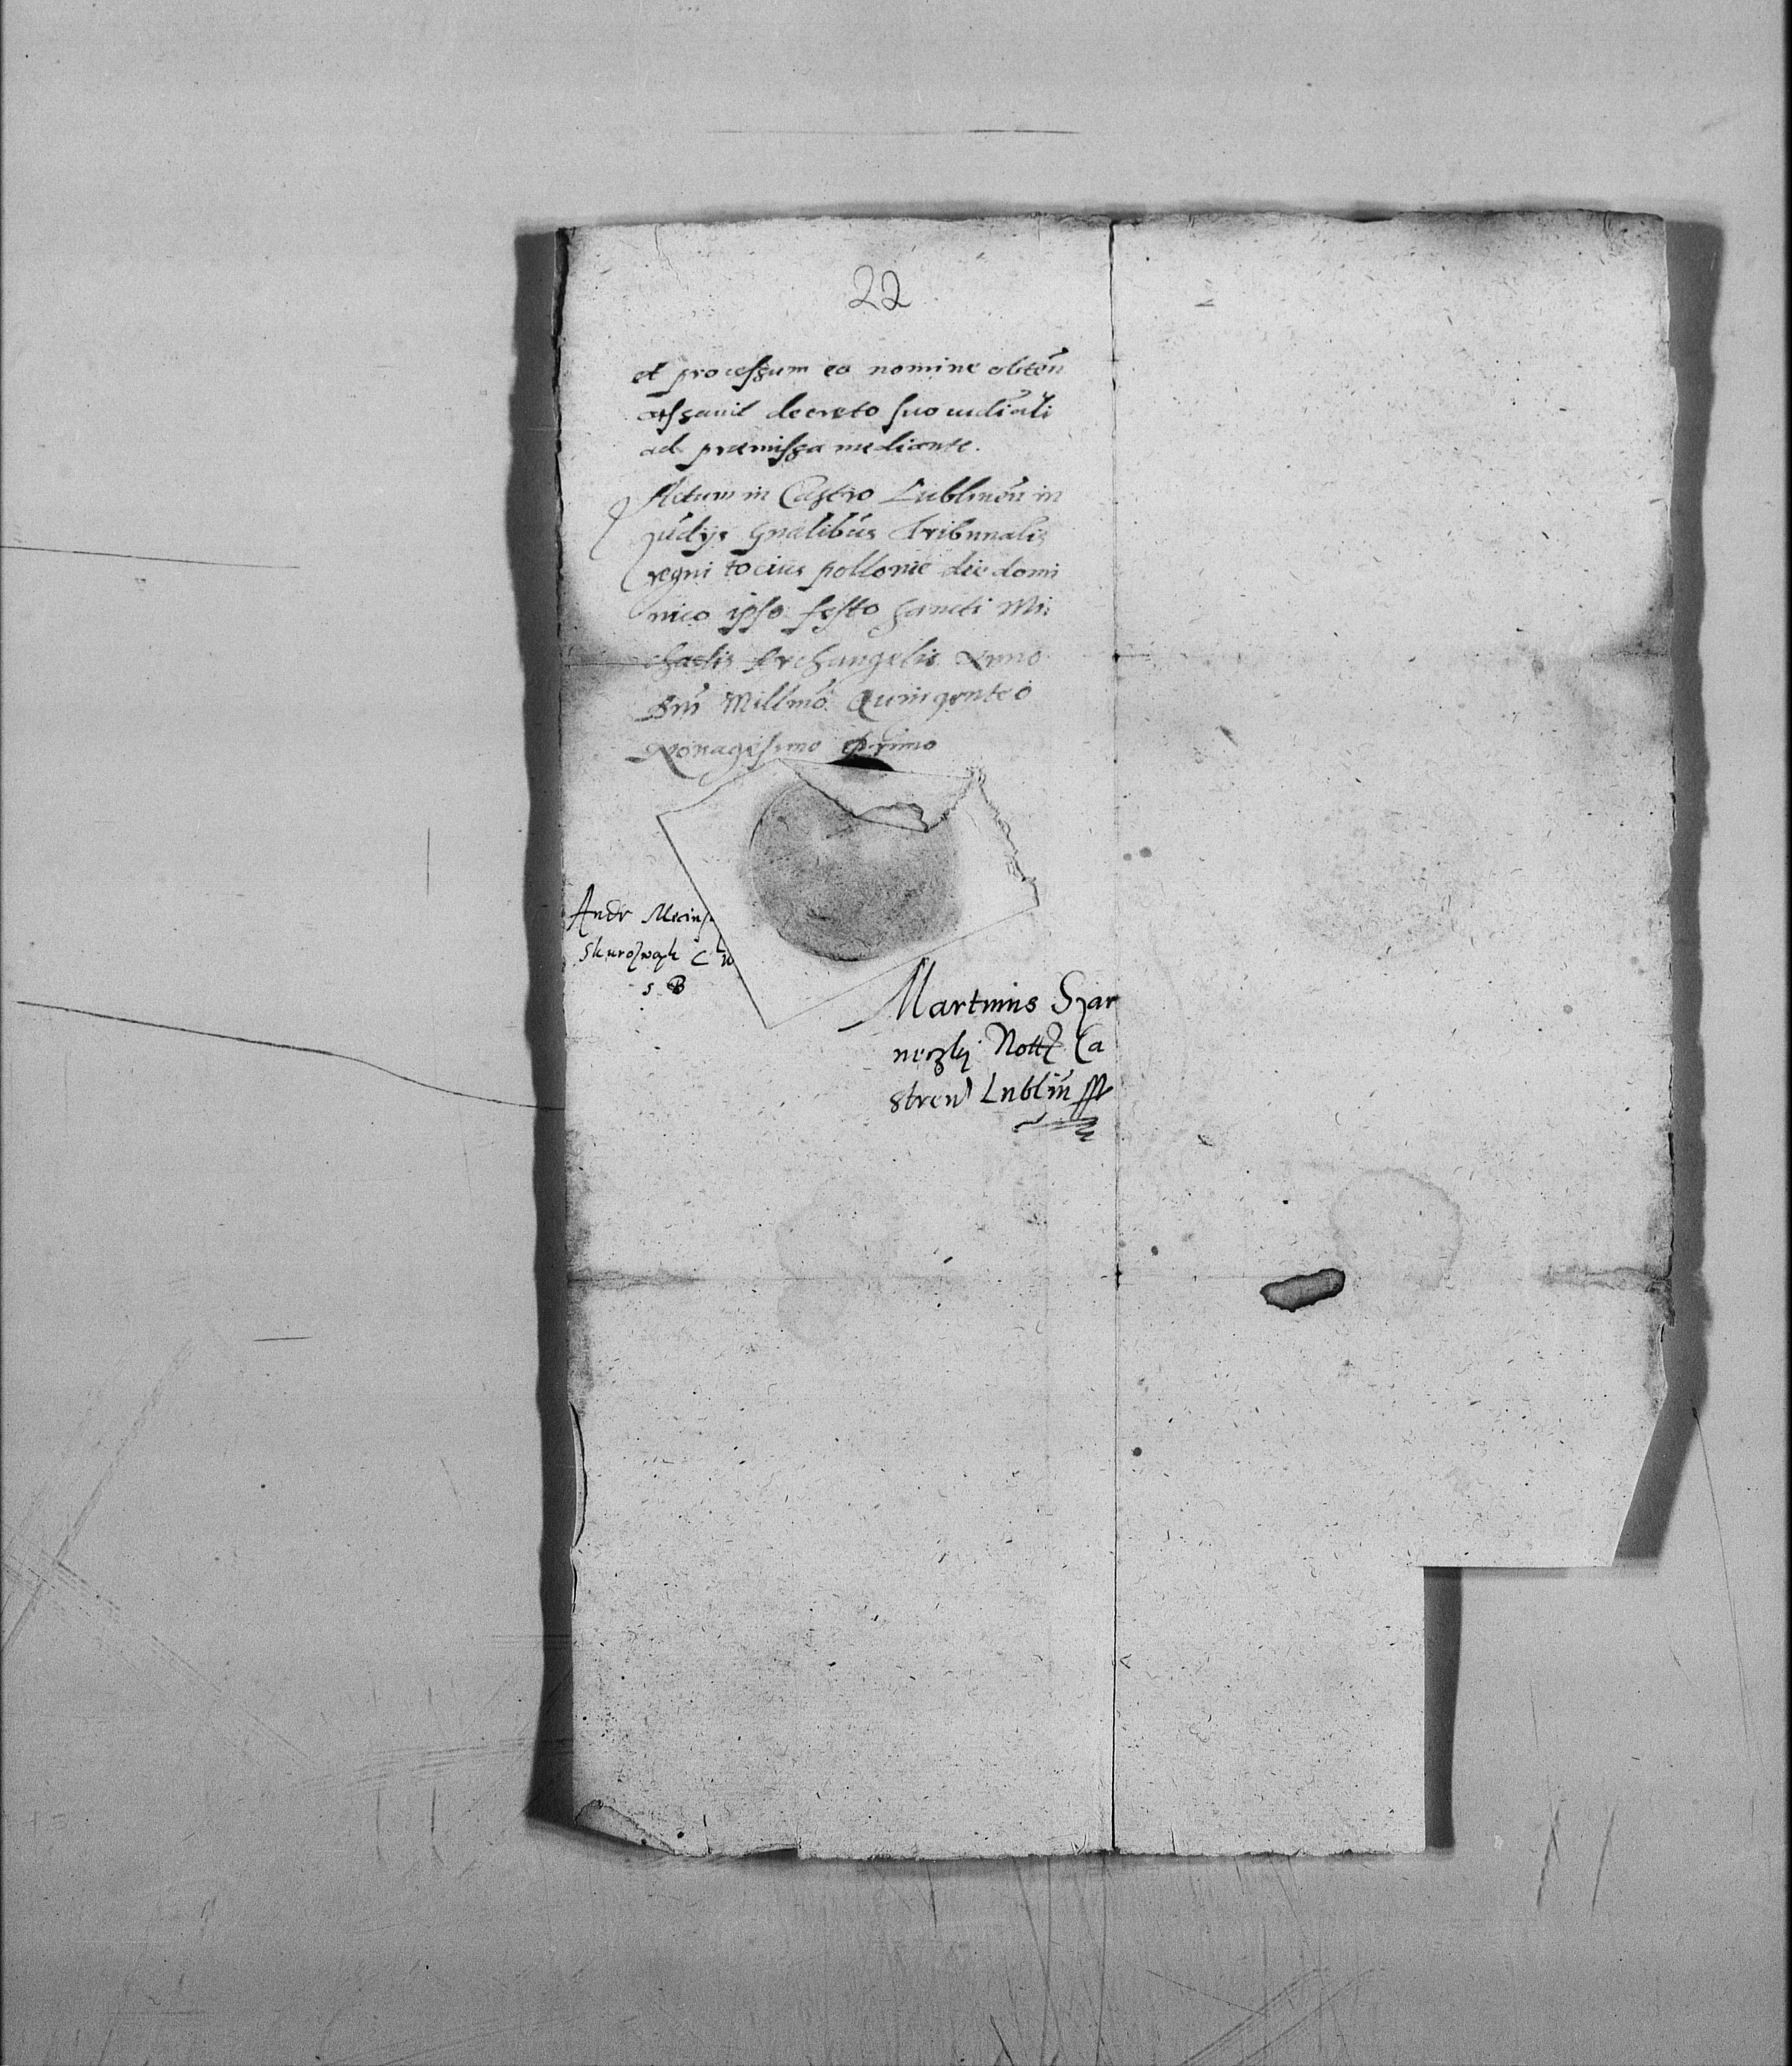 22
et processum eo nomine obten̄
cassavit decreto suo iudiciali
ad præmissa mediante.
Actum in Castro Lublinen̄ in
Judijs Gnalibus Tribunalis
regni tocius pollonie die domi
nico ipso festo Sancti Mi:
chaelis Archangelis Anno
Dni Millmo Quingenteō
Nonagesimo Primo
Andr
S B
Martinus Szar
Nott Ca
stren Lublin̄